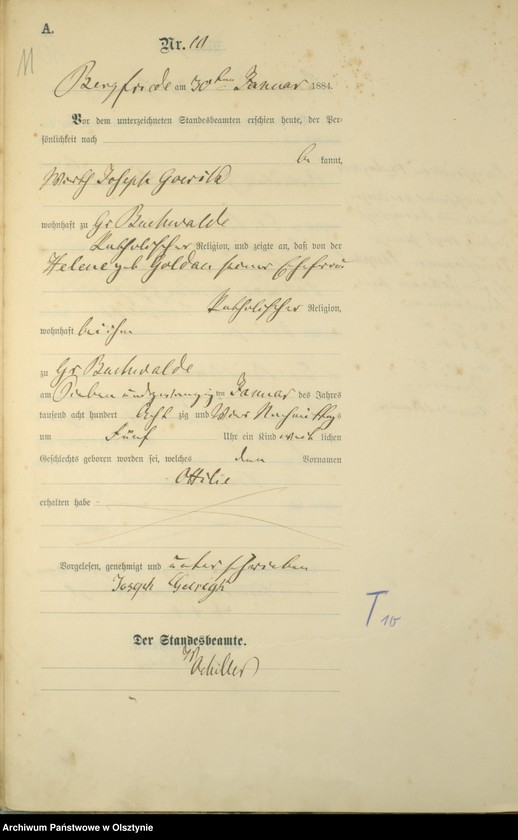 A.
11
Nr. 10
Bergfriede am 30ten Januar 1884.
Vor dem unterzeichneten Standesbeamten erschien heute, der Per-
sönlichkeit nach
be kannt,
Wirth Joseph
wohnhaft zu Gr Buchwalde
katholischer Religion, und zeigte an, daß von der
Helene geb Goldau seiner Ehefrau
katholischer Religion,
wohnhaft bei ihm
zu Gr Buchwalde
am Sieben und zwanzigsten Januar des Jahres
tausend acht hundert Acht zig und Vier Nachmittags
um Fünf Uhr ein Kind weib lichen
Geschlechts geboren worden sei, welches den Vornamen
Ottilie
erhalten habe
Vorgelesen, genehmigt und unterschrieben
Joseph
T 10
Der Standesbeamte.
Schiller
Archiwum Państwowe w Olsztynie